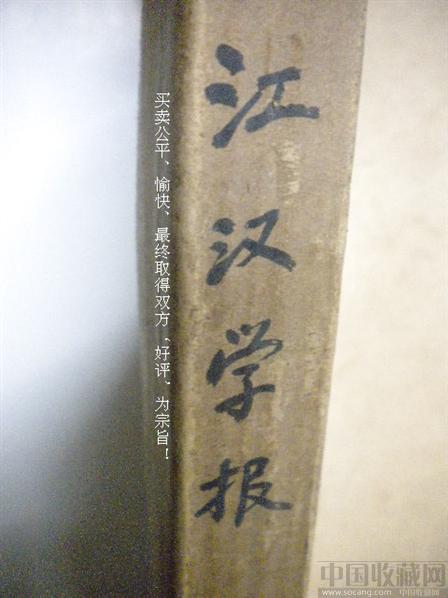 江汉学报
买卖公平、愉快、最终取得双方“好评”为宗旨！
中国收藏网
www.socang.com 中国收藏网